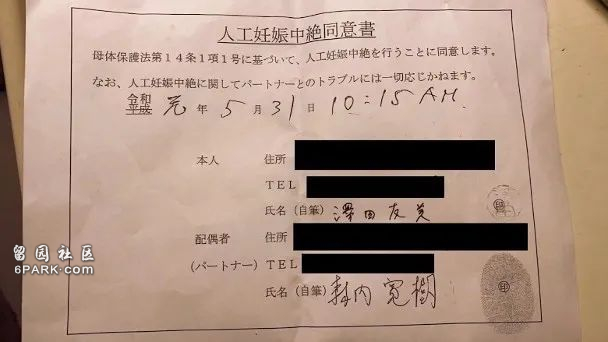 人工妊娠中絶同意書
母体保護法第14条1項1号に基づいて、人工妊娠中絶を行うことに同意します。
なお、人工妊娠中絶に関してパートナーとのトラブルには一切応じかねます。
令和
平成 元 年 5 月 31 日 10:15 AM.
本人 住所
TEL
氏名(自筆) 澤田友美
印
配偶者 住所
(パートナー) TEL
氏名(自筆) 内寛樹
印
留园社区
6PARK.com